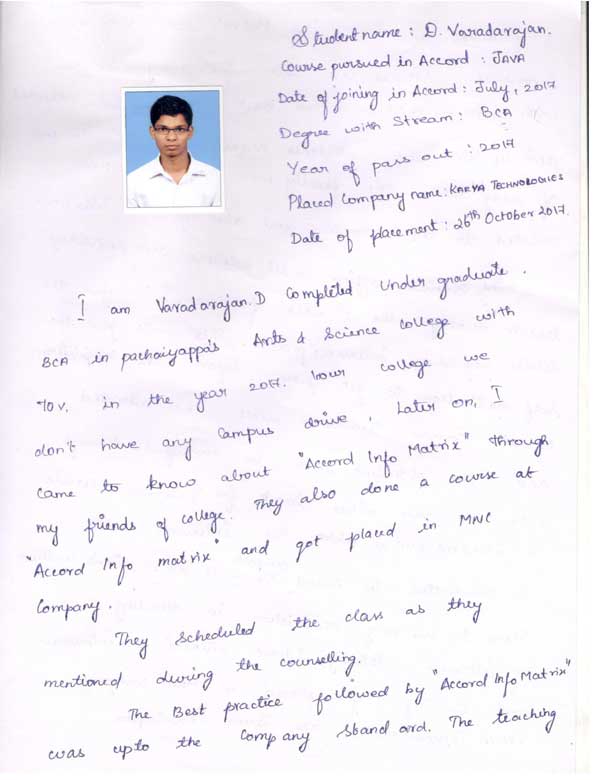 Student name : D. Varadarajan.
Course pursued in Accord : JAVA
Date of joining in Accord : July, 2017
Degree with Stream : BCA
Year of pass out : 2017
Placed Company name : KARYA TECHNOLOGIES
Date of placement : 26th October 2017.
I am Varadarajan.D Completed Under graduate.
BCA in pachaiyappa's Arts & Science college with
70%. in the year 2017. In our college we
don't have any Campus drive. Later on, I
came to know about "Accord Info Matrix" through
my friends of college. They also done a course at
"Accord Info matrix" and got placed in MNC
Company.
They Scheduled the class as they
mentioned during the counselling.
The Best practice followed by "Accord Info Matrix"
was upto the Company Standard. The teaching